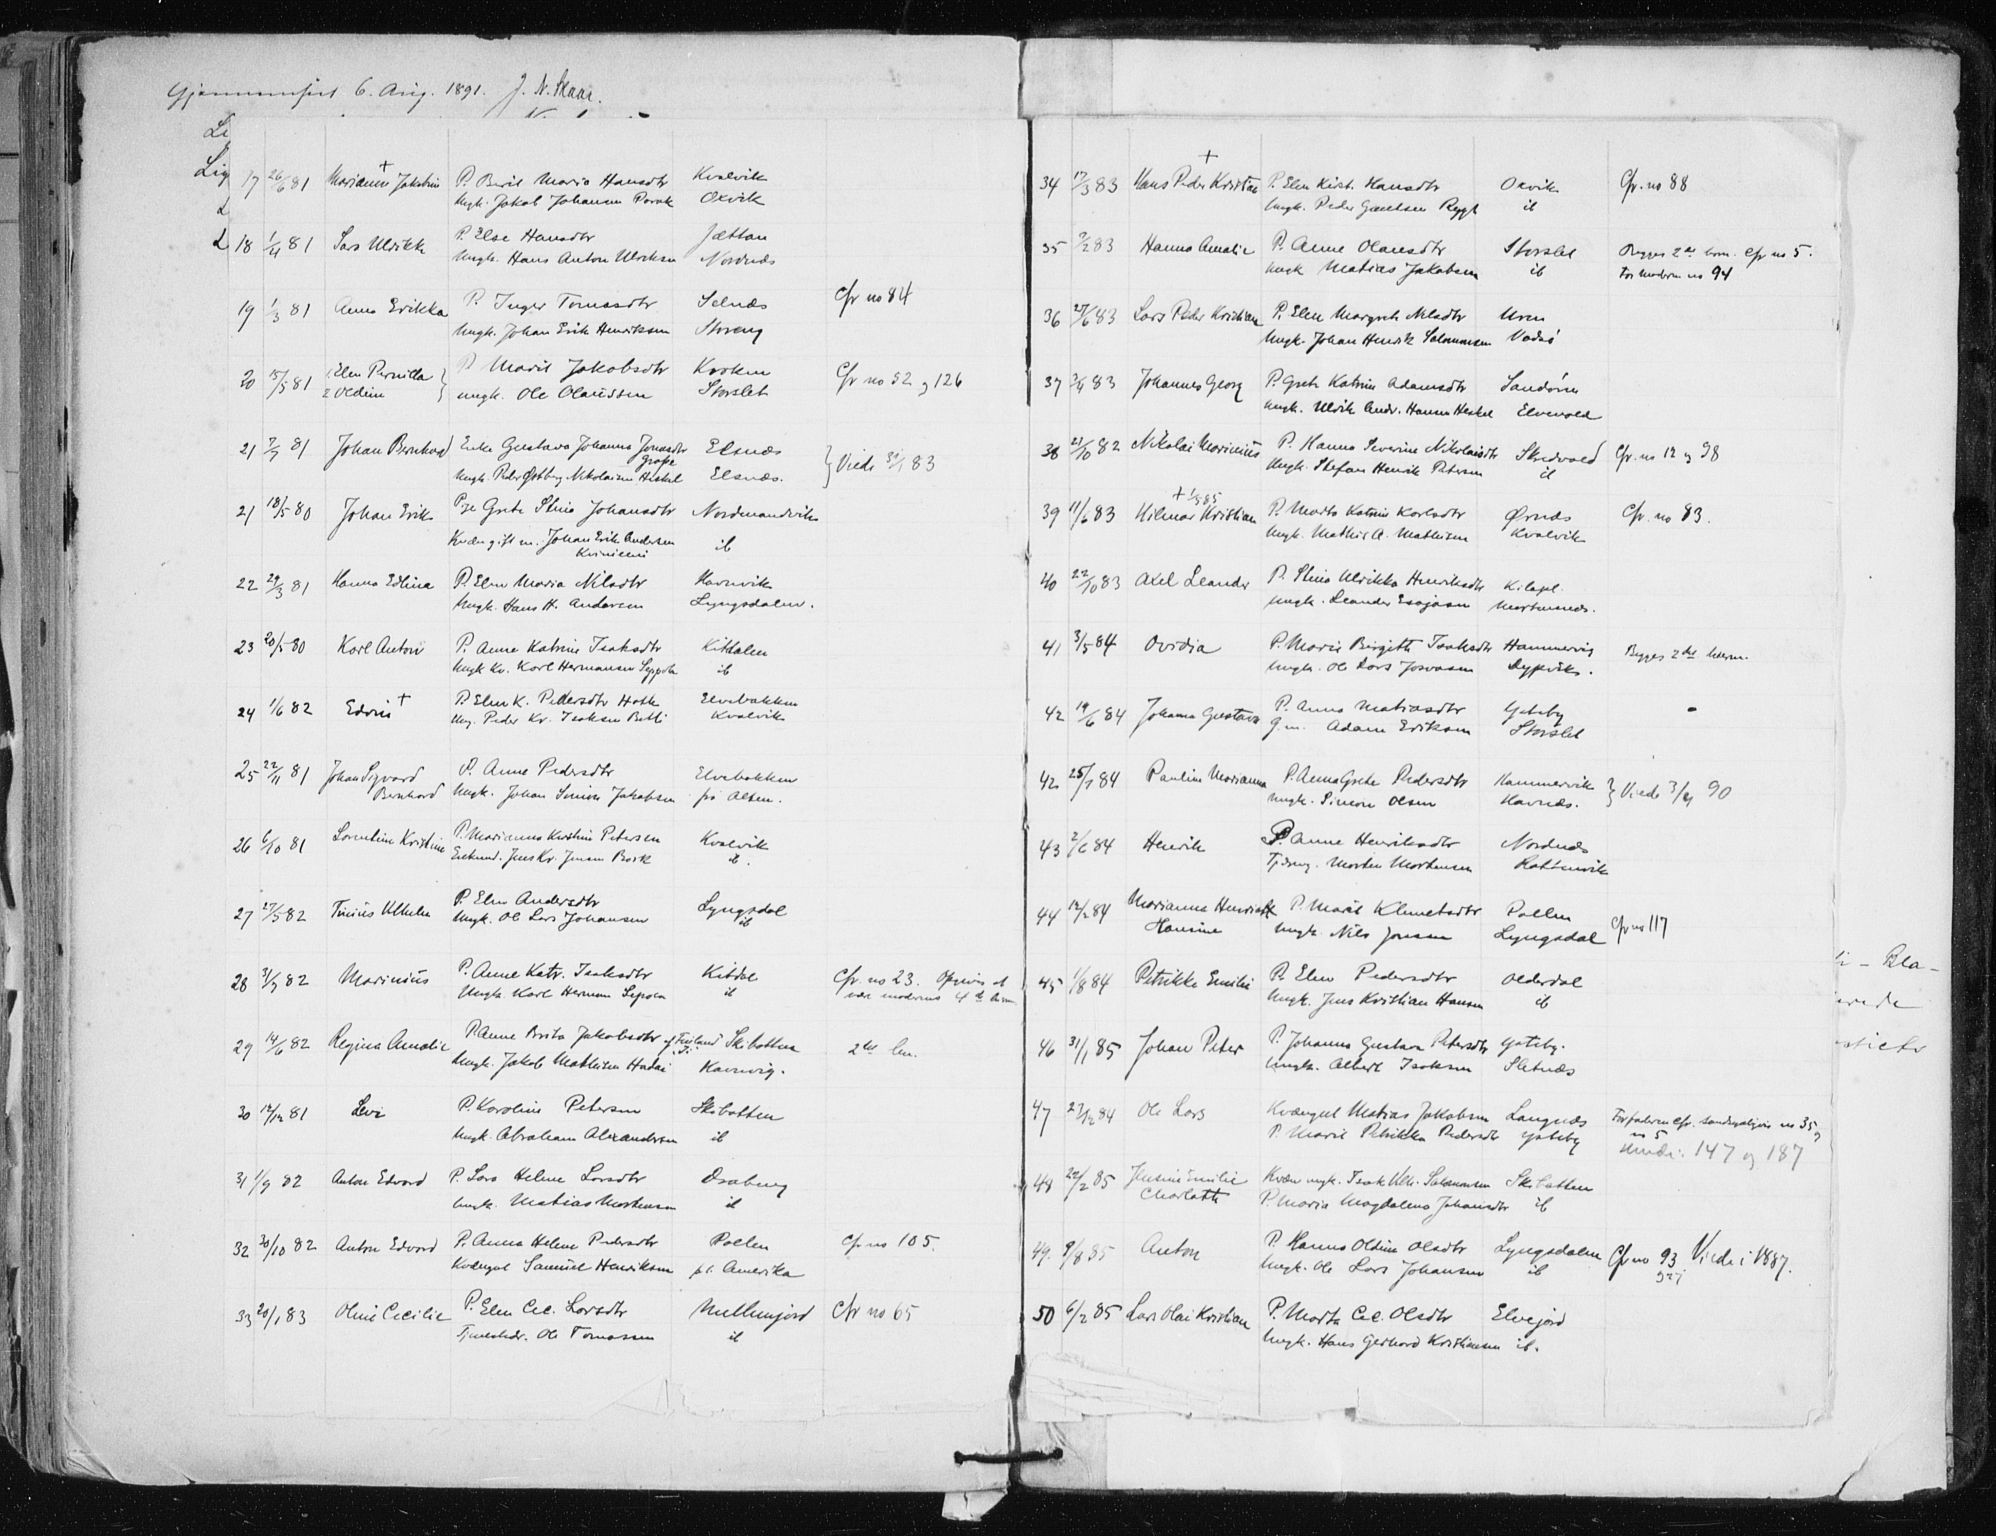 Gjennemseet 6. Aug. 1891. J. N. Skaar.
17 26/6 81 Marianne Jakobine + P. Berit Maria Hansdtr Kvalvik
Ungk. Jakob Johansen Okvik
18 1/4 81 Sara Ulrikke P. Else Hansdtr Jættan
Ungk. Hans Anton Ulriksen Nordnæs
19 1/3 81 Anna Erikka P. Inger Tomasdtr Selnæs Cfr no 84
Ungk. Johan Erik Henriksen Storeng
20 15/5 81 1 Elen Pernilla P. Marit Jakobsdtr Kroken Cfr no 52 og 126
2 Oldine Ungk. Ole Olaussen Storslet
21 7/7 81 Johan Bernhard Enke Gustava Johanna Jonasdtr Elsnæs } Viede 83
Ungk. Peder Nikolaisen Heskel Elsnæs.
21 18/5 80 Johan Erik Pge Grete Stina Johansdtr Nordmandvik
Kvæn gift m. Johan Erik Andersen ib
22 29/3 81 Hanna Edlina P. Elen Maria Nilsdtr Havnvik
Ungk. Hans H. Andersen Lyngsdalen.
23 20/5 80 Karl Anton P. Anne Katrine Isaksdtr Kitdalen
Ungk Kv. Karl Hermansen ib
24 1/6 82 Edvin + P. Elen K. Pedersdtr Elvebakken
Ung. Peder Kr. Isaksen Kvalvik
25 22/11 81 Johan Sigvard P. Anne Pedersdtr Elvebakken
Bernhard Ungk. Johan Simon Jakobsen fra Alten.
26 6/10 81 Lorentine Kristine P. Marianna Kirstine Petersen Kvalvik
Enkemd. Jens Kr. Jensen ib.
27 27/5 82 P. Elen Andersdtr Lyngsdal
Ungk. Ol Lars Johansen ib
28 3/7 82 Marinius P. Anne Katr. Isaksdtr Kitdal Cfr. no 23. Opgives at
Ungk. Karl Herman ib være moderens 4de barn
29 14/6 82 Regina Amalie P. Anne Brita Jakobsdtr af Finland Skibotten 2det bn.
Ungk. Jakob Mathisen Kavnvig.
30 14/12 81 Levi P. Karoline Petersen Skibotten
Ungk. Abraham Alexandersen ib
31 1/9 82 Anton Edvard P. Sara Helene Larsdtr
Ungk. Matias Mortensen ib
32 30/10 82 Anton Edvard P. Anna Helene Pedersdtr Pollen Cfr no 105.
Kvængut Samuel Henriksen p.t. Amerika
33 20/1 83 Oline Cecilie P. Elen Cec. Larsdtr Mellemjord Cfr no 65
Tjenestedr. Ole Tomassen ib
34 17/3 83 Hans Peder Kristian + P. Elen Kirst. Hansdtr Okvik Cfr. no 88
Ungk. Peder ib
35 7/2 83 Hanna Amalie P. Anne Olausdtr Storslet Begges 2det barn. Cfr no 5.
Ungk Matias Jakobsen ib For moderen no 94
36 27/6 83 Lars Peder Kristian P. Elen Margrete Nilsdtr Uren
Ungk. Johan Henrik Salomonsen Vadsø
37 83 Johannes Georg P. Grete Katrine Adamsdtr Sandøren
Ungk. Ulrik Andr. Hansen Heskel Elvevold
38 21/10 82 Nikolai Marinius P. Hanna Severine Nikolaisdtr Skredvold Cfr. no 12 og 98
Ungk. Stefan Henrik Petersen ib
39 11/6 83 Hilmar Kristian + 1/5 85 P. Marta Katrine Karlsdtr Ørnæs Cfr. no 83.
Ungk. Mathis A. Mathisen Kvalvik
40 22/10 83 Axel Leander P. Stina Ulrikka Henriksdtr
Ungk. Leander Esajasen Mortensnes.
41 3/5 84 Ovidia P. Marie Birgitte Isaksdtr Hammervig Begges 2det
Ungk. Ole Lars Josvasen Dypvik.
42 19/6 84 Johanna Gustava P. Anna Matiasdtr Gateby
G.m. Adam Eriksen Storslet
42 25/7 84 Pauline Marianna P. Anna Grete Pedersdtr Hammervik } Viede 90
Ungk. Simon Olsen Havnæs.
43 2/6 84 Henrik P. Anne Henriksdtr Nordnæs
Morten Mortensen Rottenvik
44 12/2 84 Marianna Henrikke P. Marit Klemetsdtr Pollen Cfr no 117
Hansine Ungk. Nils Jonsen Lyngsdal
45 1/8 84 Petrikke Emilie P. Elen Pedersdtr Olderdal
Ungk. Jens Kristian Hansen ib
46 31/1 85 Johan Peter P. Johanna Gustava Petersdtr Gateby.
Ungk. Albert Isaksen Sletnæs
47 27/12 84 Ole Lars Kvængut Matias Jakobsen Langnæs For faderen cfr. sandsynligvis no 35
P. Marit Petrikka Pedersdtr Gateby no 5 ?
147 og 187
48 22/2 85 Jensine Emilie Kvæn ungk. Isak Vilh. Salomonsen Skibotten
Charlotte P. Maria Magdalena Johansdtr ib
49. 9/8 85 Anton P. Hanna Oldine Olsdtr Lyngsdalen Cfr no 93 Viede i 1887.
Ungk. Ole Lars Johansen ib
50 6/2 85 Lars Olai Kristian P. Marta Cec. Olsdtr Elvejord
Ungk. Hans Gerhard Kristiansen ib.